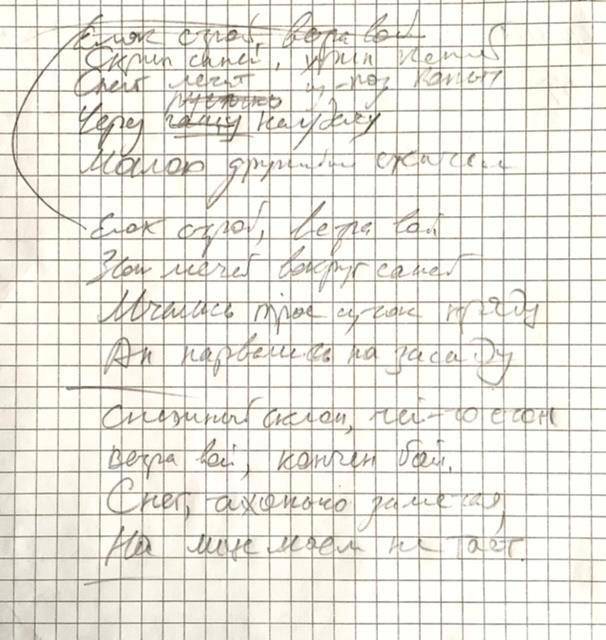 Елок строй, ветра вой
Скрип саней, храп коней
Снег летит из-под копыт
Через чащу напролом
Малою дружиной скачем
Елок строй, ветра вой
Звон мечей вокруг саней
Мчались трое суток кряду
Ан нарвались на засаду
Снежный склон, чей-то стон
Ветра вой, кончен бой.
Снег, тихонько заметая,
На лице моем не тает.